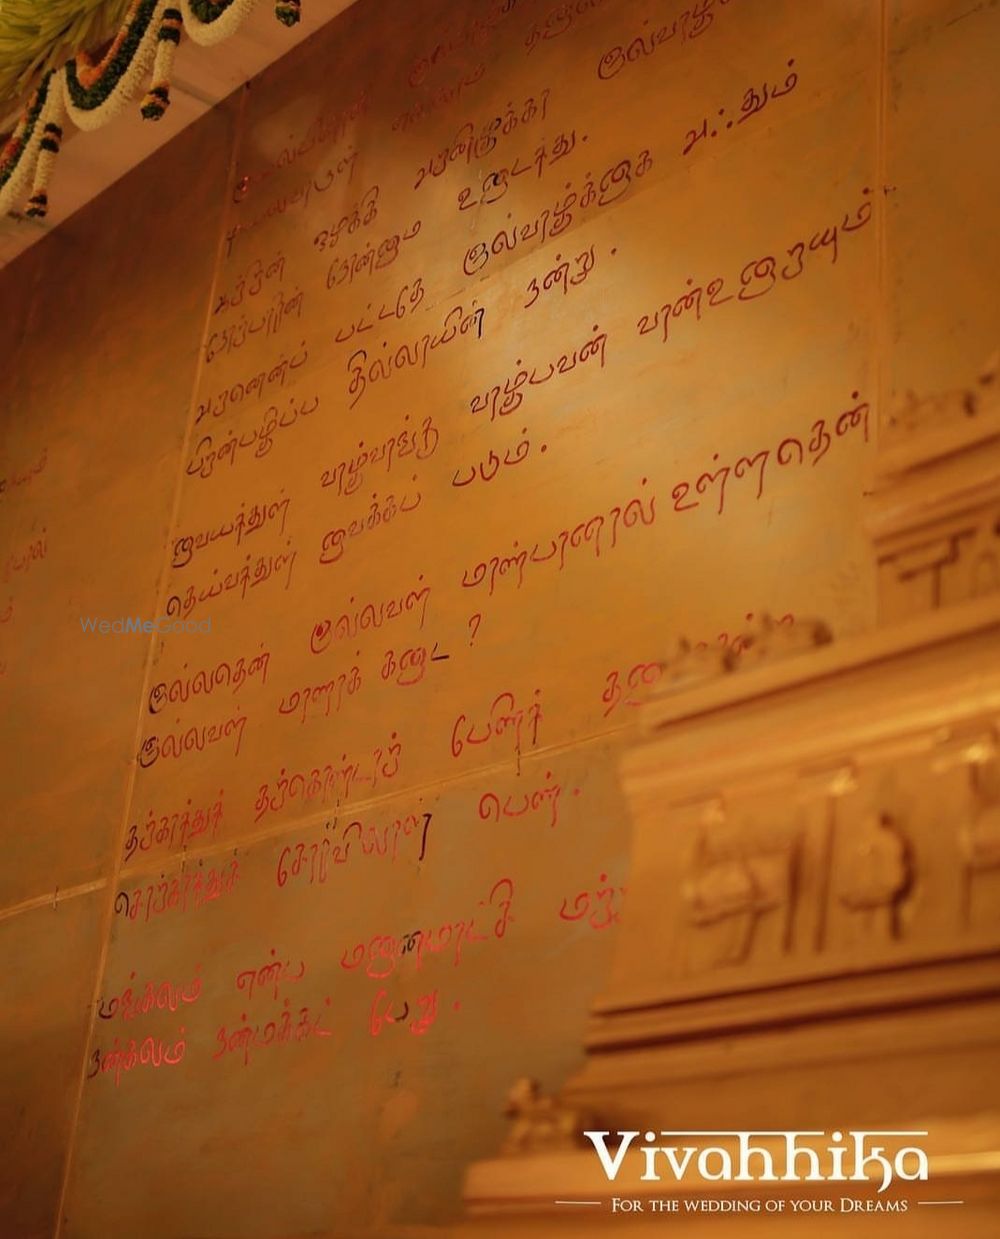 ஆற்றின் ஒழுக்கி அறனிழுக்கா இல்வாழ்க்கை
நோற்பாரின் நோன்மை உடைத்து.
அறனெனப் பட்டதே இல்வாழ்க்கை அஃதும்
பிறன்பழிப்ப தில்லாயின் நன்று.
வையத்துள் வாழ்வாங்கு வாழ்பவன் வான்உறையும்
தெய்வத்துள் வைக்கப் படும்.
இல்லதென் இல்லவள் மாண்பானால் உள்ளதென்
இல்லவள் மாணாக் கடை ?
தற்காத்துத் தற்கொண்டாற் பேணித்
சொற்காத்துச் சோர்விலாள் பெண்.
மங்கலம் என்ப மனைமாட்சி மற்று
நன்கலம் நன்மக்கட் பேறு.
WedMeGood
Vivahhika
FOR THE WEDDING OF YOUR DREAMS